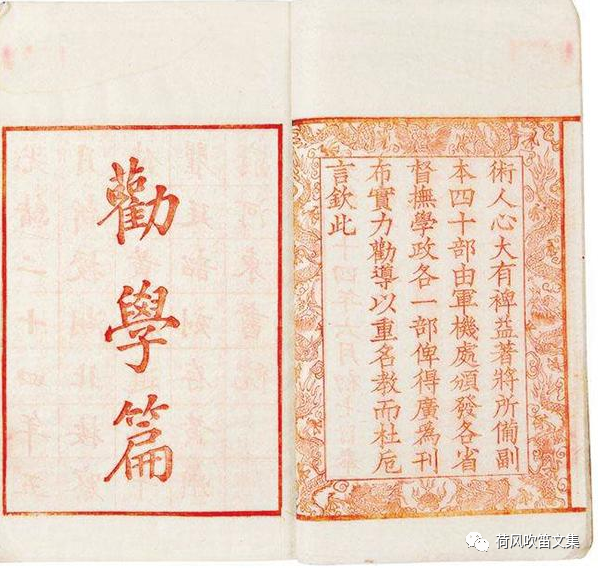 術人心大有裨益著將所備副
本四十部由軍機處頒發各省
督撫學政各一部俾得廣爲刊
布實力勸導以重名教而杜卮
言欽此
勸學篇
荷风吹笛文集